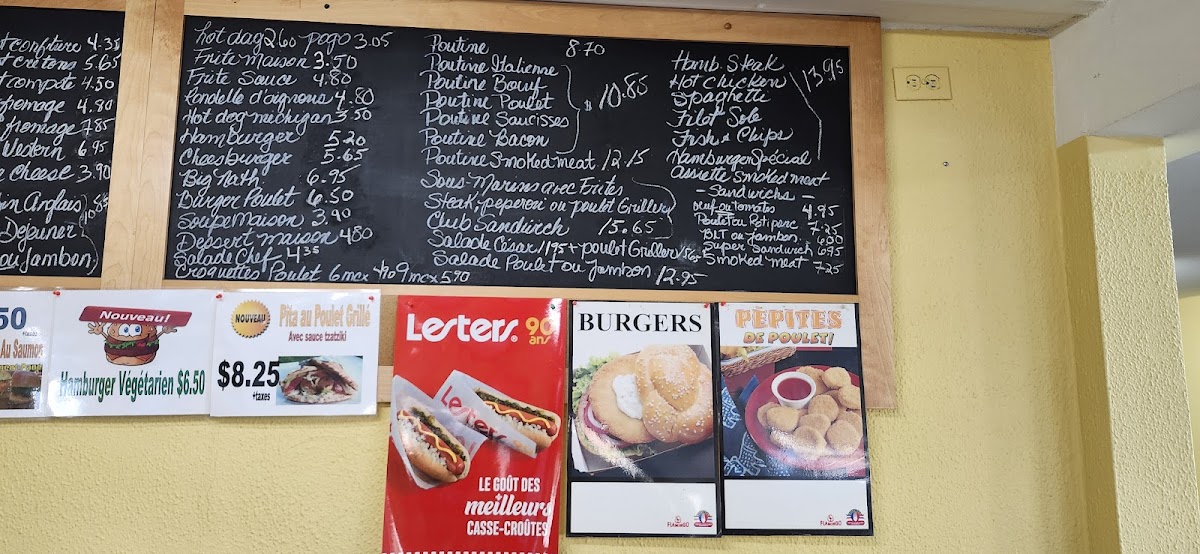 t confiture 4.35
t cretons 5.65
t compote 4.50
fromage 4.90
fromage 7.85
Western 6.95
cheese 3.90
Anglais
Dejeuner
ou Jambon)
10.85
hot dog 2.60 pogo 3.05
Frite maison 3.50
Frite Sauce 4.80
Rondelle d'oignons 4.80
Hot dog michigan 3.50
Hamburger 5.20
Cheesburger 5.65
Big Nath 6.95
Burger Poulet 6.50
Soupe maison 3.90
Dessert maison 4.80
Salade Chef 4.35
Croquettes Poulet 6 mcx 4.90 9 mcx 5.90
Poutine 8.70
Poutine Italienne
Poutine Bœuf
Poutine Poulet
Poutine Saucisses
Poutine Bacon
$ 10.85
Poutine Smoked meat 12.15
Sous-Marins avec Frites
Steak, peperoni ou poulet Grillery
Club Sandwich 15.65
Salade César 11.95 + poulet Griller
Salade Poulet ou Jambon 12.95
Hamb. Steak
Hot Chicken
Spaghetti
Filet Sole
Fish & Chips
Hamburger Spécial
13.95
Assiette Smoked meat
- Sandwichs -
œuf ou tomates 4.95
Poulet ou Roti porc 7.25
BLT ou Jambon 6.00
Super Sandwich 6.95
Smoked meat 7.25
50
Au Saumon
Nouveau!
Hamburger Végétarien $6.50
NOUVEAU
Pita au Poulet Grillé
Avec sauce tzatziki
$8.25
+taxes
Lesters. 90 ans
Lesters
LE GOÛT DES
meilleurs
CASSE-CROÛTES
BURGERS
FLAMINGO
PÉPITES
DE POULET!
FLAMINGO